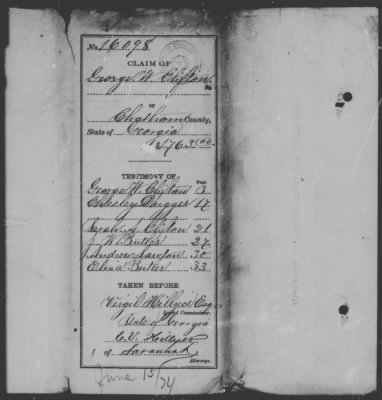 No. 16098
CLAIM OF
George W. Clifton
OF
Chatham County,
State of Georgia
$1763.00
TESTIMONY OF Page.
George W. Clifton 3
17
Sarah Clifton 21
J. W. Butler 27
Andrew 30
Butler 33
TAKEN BEFORE
Virgil Hillyer Esq
Special Commissioner.
State of Georgia
C. V. Hillyer
of Savannah
Attorney.
June 15/74